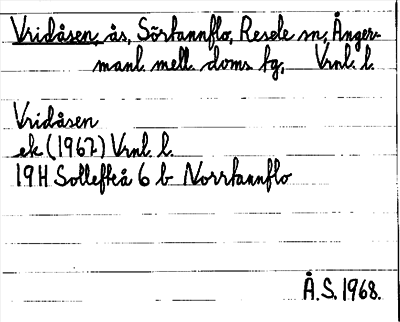 Vridåsen, ås, Sörtannflo, Resele sn, Ånger-
manl. mell. doms tg, Vrnl. l.
Vridåsen
ek (1967) Vrnl. l.
19H Sollefteå 6 b Norrtannflo
Å.S. 1968.